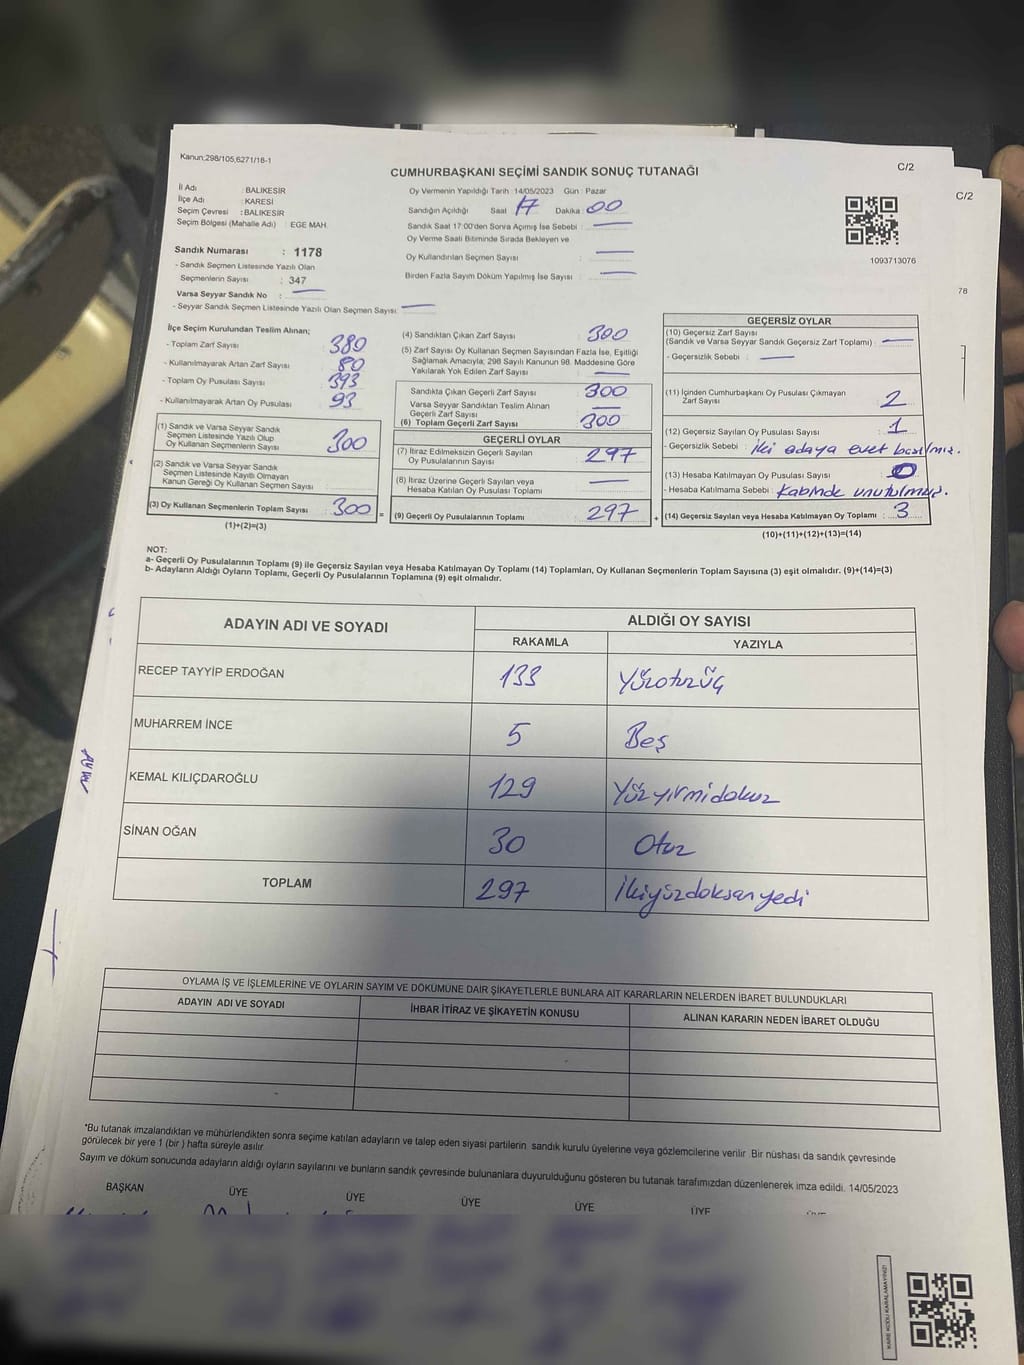 Kanun;298/105,6271/18-1
C/2
C/2
CUMHURBAŞKANI SEÇİMİ SANDIK SONUÇ TUTANAĞI
İl Adı : BALIKESİR
İlçe Adı : KARESİ
Seçim Çevresi : BALIKESİR
Seçim Bölgesi (Mahalle Adı) : EGE MAH.
Sandık Numarası : 1178
- Sandık Seçmen Listesinde Yazılı Olan
Seçmenlerin Sayısı : 347
Varsa Seyyar Sandık No :
- Seyyar Sandık Seçmen Listesinde Yazılı Olan Seçmen Sayısı:
Oy Vermenin Yapıldığı Tarih :14/05/2023 Gün : Pazar
Sandığın Açıldığı Saat 17 Dakika : 00
Sandık Saat 17:00'den Sonra Açmış İse Sebebi :
Oy Verme Saati Bitiminde Sırada Bekleyen ve
Oy Kullandırılan Seçmen Sayısı :
Birden Fazla Sayım Döküm Yapılmış İse Sayısı :
1093713076
78
İlçe Seçim Kurulundan Teslim Alınan;
- Toplam Zarf Sayısı : 380
- Kullanılmayarak Artan Zarf Sayısı : 80
- Toplam Oy Pusulası Sayısı : 393
- Kullanılmayarak Artan Oy Pusulası : 93
(1) Sandık ve Varsa Seyyar Sandık
Seçmen Listesinde Yazılı Olup
Oy Kullanan Seçmenlerin Sayısı : 300
(2) Sandık ve Varsa Seyyar Sandık
Seçmen Listesinde Kayıtlı Olmayan
Kanun Gereği Oy Kullanan Seçmen Sayısı :
(3) Oy Kullanan Seçmenlerin Toplam Sayısı : 300 =
(1)+(2)=(3)
(4) Sandıktan Çıkan Zarf Sayısı : 300
(5) Zarf Sayısı Oy Kullanan Seçmen Sayısından Fazla İse, Eşitliği
Sağlamak Amacıyla; 298 Sayılı Kanunun 98. Maddesine Göre
Yakılarak Yok Edilen Zarf Sayısı :
Sandıkta Çıkan Geçerli Zarf Sayısı : 300
Varsa Seyyar Sandıktan Teslim Alınan
Geçerli Zarf Sayısı :
(6) Toplam Geçerli Zarf Sayısı : 300
GEÇERLİ OYLAR
(7) İtiraz Edilmeksizin Geçerli Sayılan
Oy Pusulalarının Sayısı : 297
(8) İtiraz Üzerine Geçerli Sayılan veya
Hesaba Katılan Oy Pusulası Toplamı :
(9) Geçerli Oy Pusulalarının Toplamı : 297 +
GEÇERSİZ OYLAR
(10) Geçersiz Zarf Sayısı
(Sandık ve Varsa Seyyar Sandık Geçersiz Zarf Toplamı) :
- Geçersizlik Sebebi :
(11) İçinden Cumhurbaşkanı Oy Pusulası Çıkmayan
Zarf Sayısı : 2
(12) Geçersiz Sayılan Oy Pusulası Sayısı : 1
- Geçersizlik Sebebi : İki adaya evet basılmış.
(13) Hesaba Katılmayan Oy Pusulası Sayısı : 0
- Hesaba Katılmama Sebebi : Kabinde unutulmuş.
(14) Geçersiz Sayılan veya Hesaba Katılmayan Oy Toplamı : 3
(10)+(11)+(12)+(13)=(14)
NOT:
a- Geçerli Oy Pusulalarının Toplamı (9) ile Geçersiz Sayılan veya Hesaba Katılmayan Oy Toplamı (14) Toplamları, Oy Kullanan Seçmenlerin Toplam Sayısına (3) eşit olmalıdır. (9)+(14)=(3)
b- Adayların Aldığı Oyların Toplamı, Geçerli Oy Pusulalarının Toplamına (9) eşit olmalıdır.
ADAYIN ADI VE SOYADI
ALDIĞI OY SAYISI
RAKAMLA YAZIYLA
RECEP TAYYİP ERDOĞAN 133 Yüzotuzüç
MUHARREM İNCE 5 Beş
KEMAL KILIÇDAROĞLU 129 Yüzyirmidokuz
SİNAN OĞAN 30 Otuz
TOPLAM 297 İkiyüzdoksanyedi
OYLAMA İŞ VE İŞLEMLERİNE VE OYLARIN SAYIM VE DÖKÜMÜNE DAİR ŞİKAYETLERLE BUNLARA AİT KARARLARIN NELERDEN İBARET BULUNDUKLARI
ADAYIN ADI VE SOYADI İHBAR İTİRAZ VE ŞİKAYETİN KONUSU ALINAN KARARIN NEDEN İBARET OLDUĞU
*Bu tutanak imzalandıktan ve mühürlendikten sonra seçime katılan adayların ve talep eden siyasi partilerin sandık kurulu üyelerine veya gözlemcilerine verilir. Bir nüshası da sandık çevresinde
görülecek bir yere 1 (bir ) hafta süreyle asılır.
Sayım ve döküm sonucunda adayların aldığı oyların sayılarını ve bunların sandık çevresinde bulunanlara duyurulduğunu gösteren bu tutanak tarafımızdan düzenlenerek imza edildi. 14/05/2023
BAŞKAN ÜYE ÜYE ÜYE ÜYE ÜYE
KARE KODU KARALAMAYINIZ!